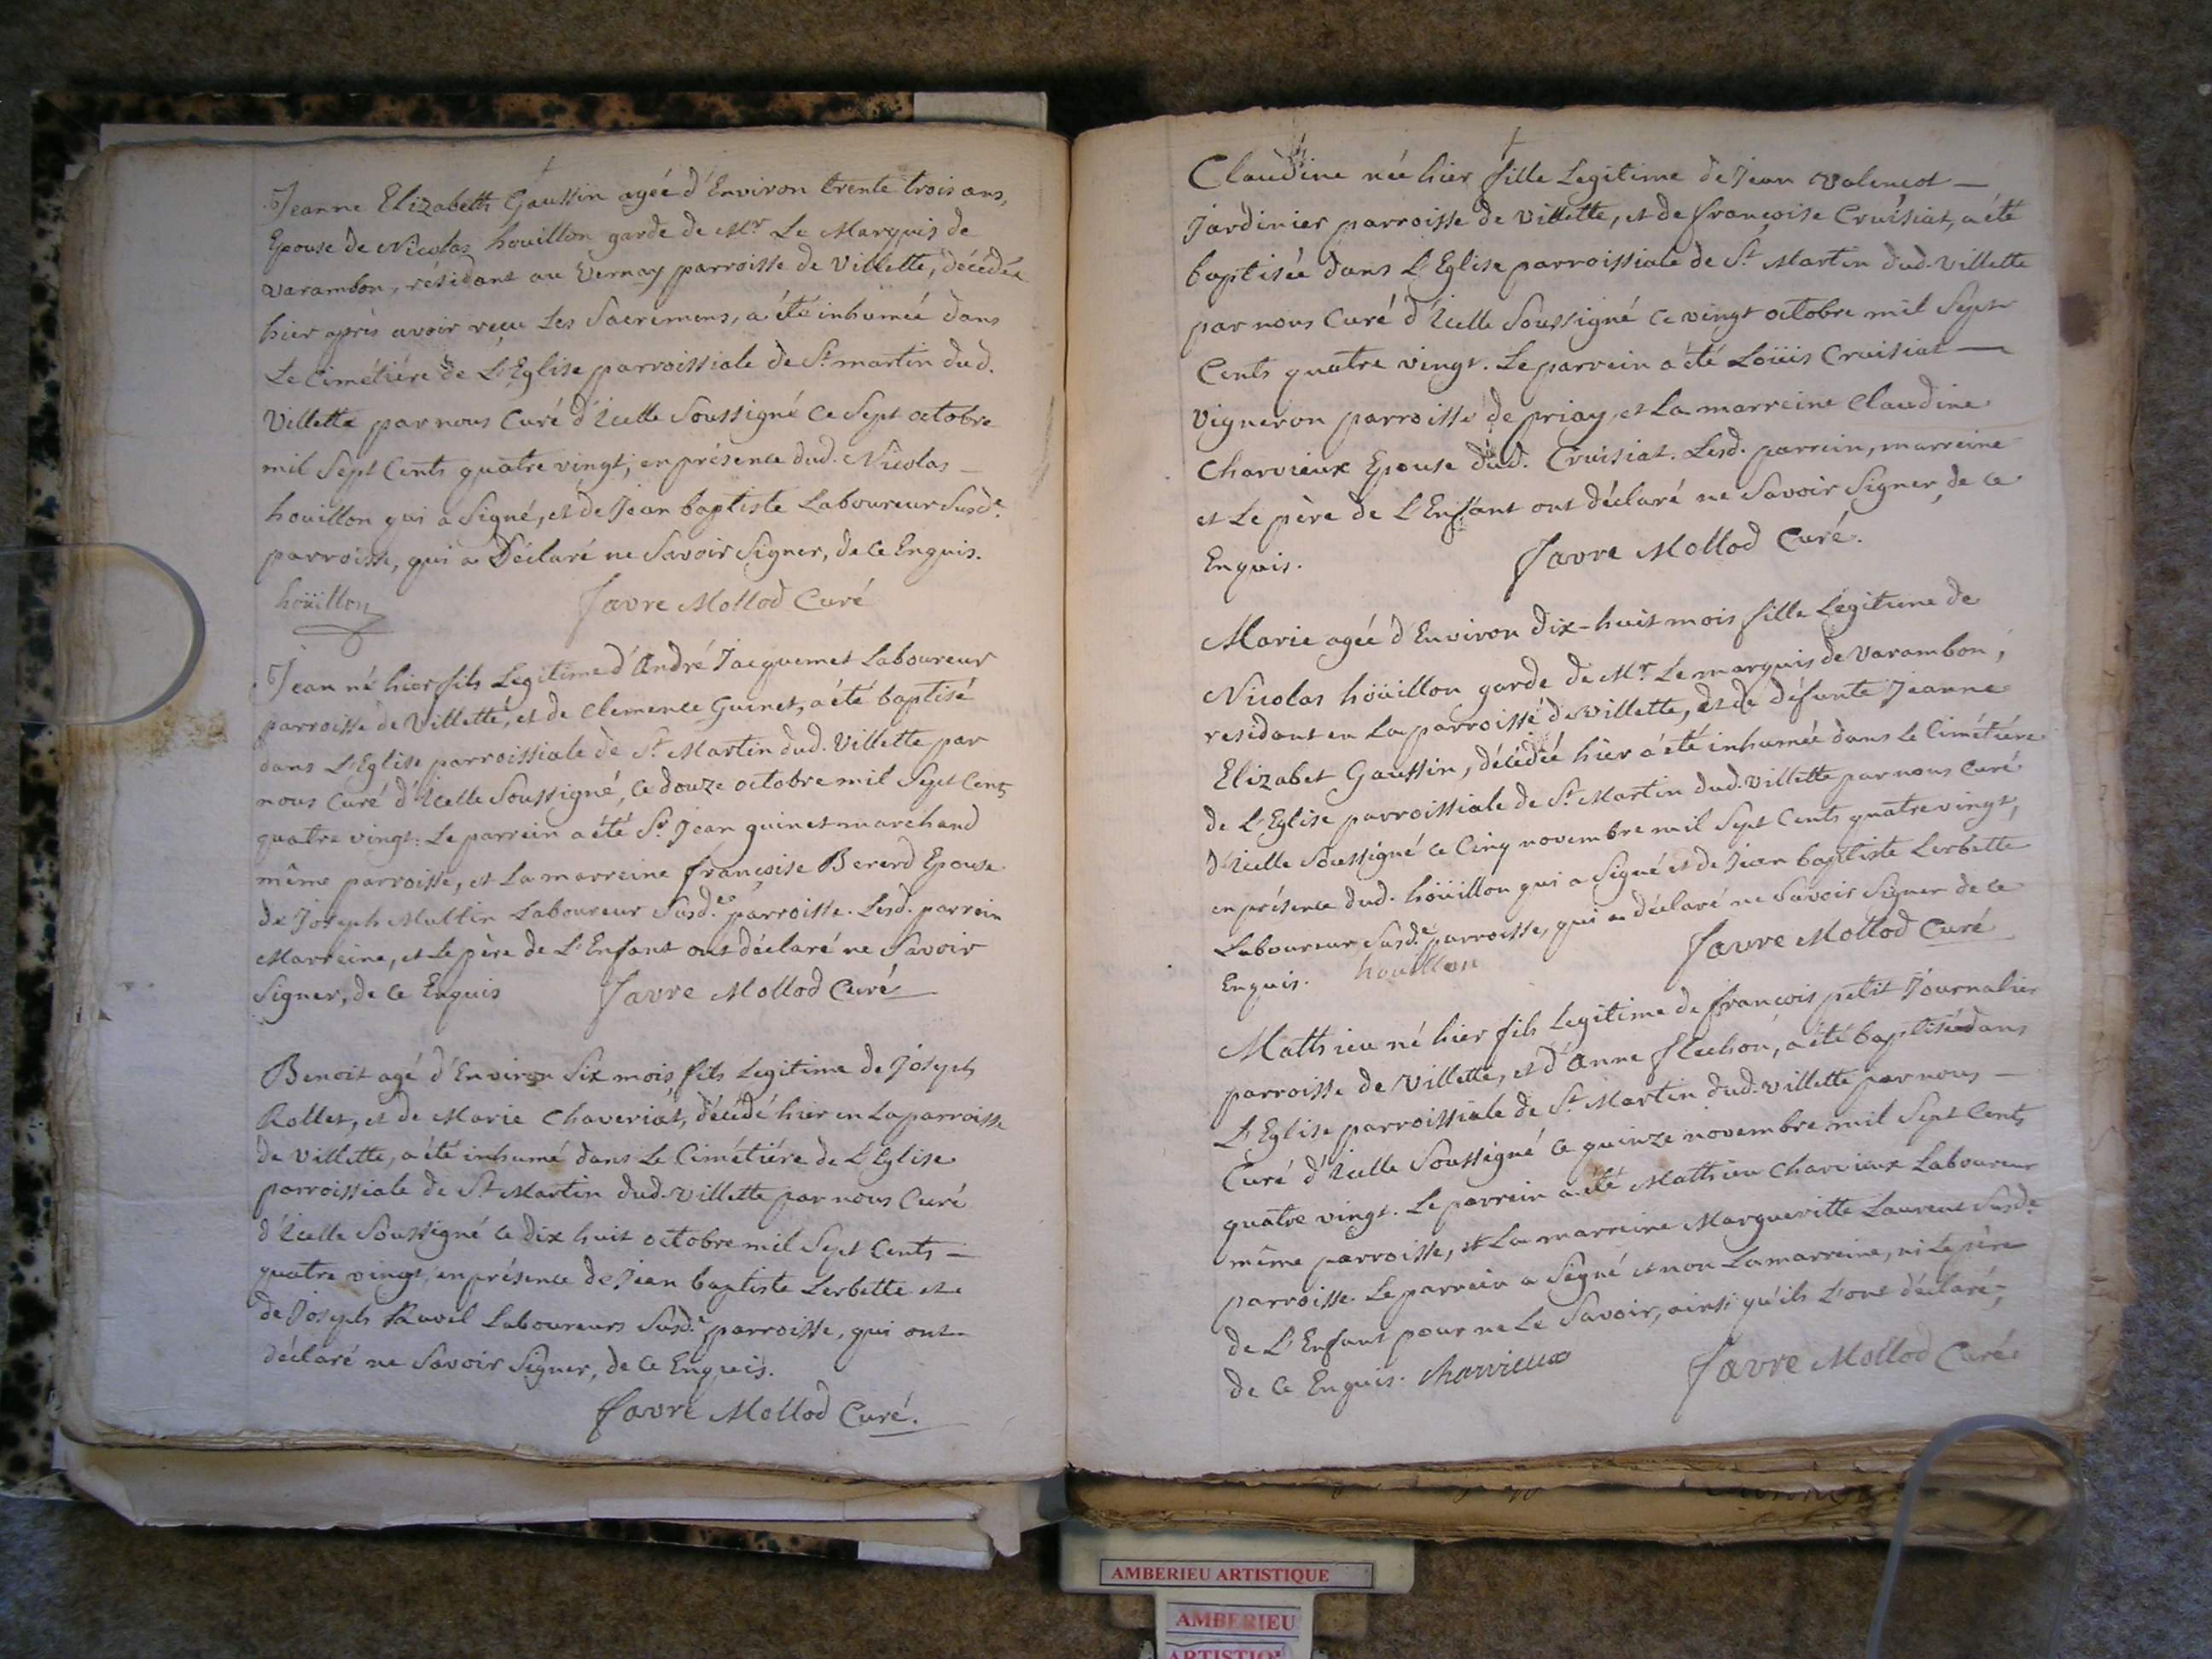 Jeanne Elizabeth Gaussin agée d'Environ trente trois ans,
Epouse de Nicolas houillon garde de Mr Le Marquis de
varambon, résidant au Vernay parroisse de Villette, décédée
hier après avoir reçu Les Sacremens, a été inhumée dans
Le Cimétiére de L'Eglise parroissiale de St martin dud.
Villette par nous Curé d'Icelle Soussigné Ce Sept octobre
mil Sept Cents quatre vingt, en présence dud. Nicolas
houillon qui a Signé, et de Jean baptiste Laboureur Susde
parroisse, qui a Déclaré ne Savoir Signer, de Ce Enquis.
hoüillon Favre Mollod Curé
Jean né hier fils Legitime d'André Jacquemet Laboureur
parroisse de Villette, et de Clemence Guinet, a été baptisé
dans L'Eglise parroissiale de St Martin dud. Villette par
nous Curé d'Icelle Soussigné, Ce douze octobre mil Sept Cents
quatre vingt. Le parrein a été Sr Jean guinet marchand
même parroisse, et La marreine françoise Bererd Epouse
de Joseph Multin Laboureur Susde parroisse. Lesd. parrein
Marreine, et Le père de L'Enfant ont déclaré ne Savoir
Signer, de Ce Enquis Favre Mollod Curé
Benoit agé d'Environ Six mois fils Legitime de Joseph
Rollet, et de Marie Chaveriat, décédé hier en La parroisse
de Villette, a été inhumé dans Le Cimétiére de L'Eglise
parroissiale de St Martin dud. Villette par nous Curé
d'Icelle Soussigné Ce dix huit octobre mil Sept Cents
quatre vingt, en présence de Jean baptiste Lerbette et
de Joseph Ravel Laboureurs Susde parroisse, qui ont
déclaré ne Savoir Signer, de Ce Enquis.
Favre Mollod Curé.
Claudine née hier fille Legitime de Jean
Jardinier parroisse de Villette, et de françoise Cruisiat, a été
baptisée dans L'Eglise parroissiale de St Martin dud. Villette
par nous Curé d'Icelle Soussigné Ce vingt octobre mil Sept
Cents quatre vingt. Le parrein a été Loüis Cruisiat
Vigneron parroisse de priay, et La marreine Claudine
Charvieux Epouse dud. Cruisiat. Lesd. parrein, marreine
et Le père de L'Enfant ont déclaré ne Savoir Signer, de Ce
Enquis. Favre Mollod Curé.
Marie agée d'Environ dix-huit mois fille Légitime de
Nicolas hoüillon garde de Mr Le marquis de Varambon,
residant en La parroisse de Villette, et de défunte Jeanne
Elizabet Gaussin, décédée hier a été inhumée dans Le Cimétiére
de L'Eglise parroissiale de St Martin dud. Villette par nous Curé
d'Icelle Soussigné Ce Cinq novembre mil Sept Cents quatre vingt,
en présence dud. hoüillon qui a Signé et de Jean baptiste Lerbette
Laboureur Susde parroisse, qui a déclaré ne Savoir Signer de Ce
Enquis. houillon Favre Mollod Curé
Mathieu né hier fils Legitime de françois petit Journalier
parroisse de Villette, et d'Anne flechon, a été baptisé dans
L'Eglise parroissiale de St Martin dud. Villette par nous
Curé d'Icelle Soussigné Ce quinze novembre mil Sept Cents
quatre vingt. Le parrein a été Mathieu Charvieux Laboureur
même parroisse, et La marreine Margueritte Laurent Susde
parroisse. Le parrein a Signé et non La marreine, ni Le père
de L'Enfant pour ne Le Savoir, ainsi qu'ils L'ont déclaré,
de Ce Enquis. Charvieux Favre Mollod Curé.
AMBERIEU ARTISTIQUE
AMBERIEU
ARTISTIQUE